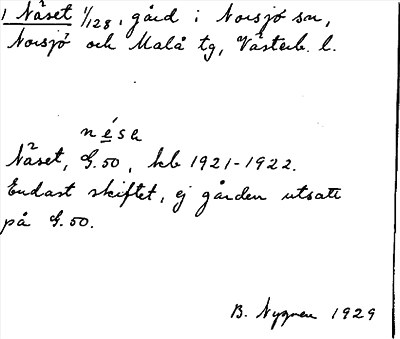 1 Näset 1/128, gård i Norsjö sn,
Norsjö och Malå tg, Västerb. l.
nése
Näset, G.50, kb 1921-1922.
Endast skiftet, ej gården utsatt
på G.50.
B. Nygren 1929